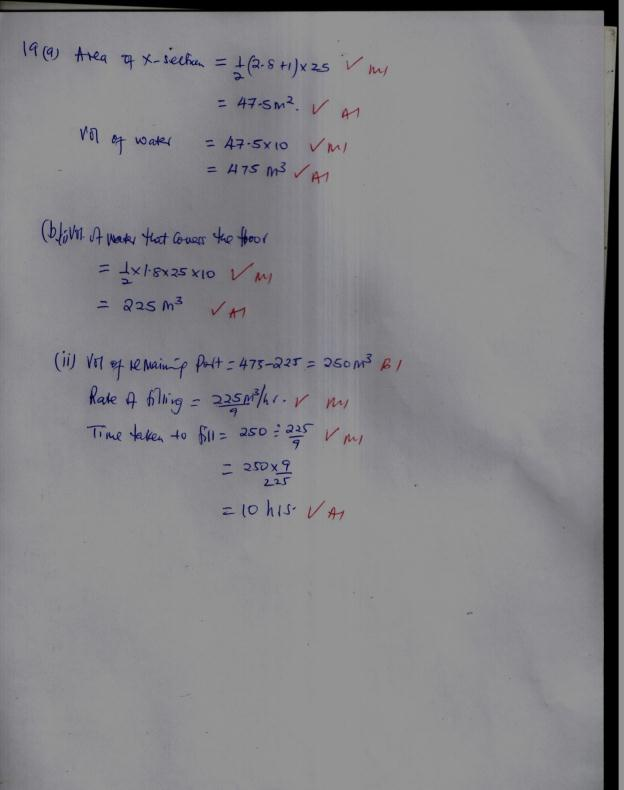 19(a) Area of x-section = 1/2(2.8+1)x25 ✓ M1
= 47.5m². ✓ A1
Vol of water = 47.5x10 ✓ M1
= 475 m³ ✓ A1
(b)(i) Vol. of water that covers the floor
= 1/2x1.8x25x10 ✓ M1
= 225 m³ ✓ A1
(ii) Vol of remaining part = 475-225 = 250m³ B1
Rate of filling = 225m³/hr. ✓ M1
9
Time taken to fill = 250 ÷ 225/9 ✓ M1
= 250x9
225
= 10 hrs. ✓ A1